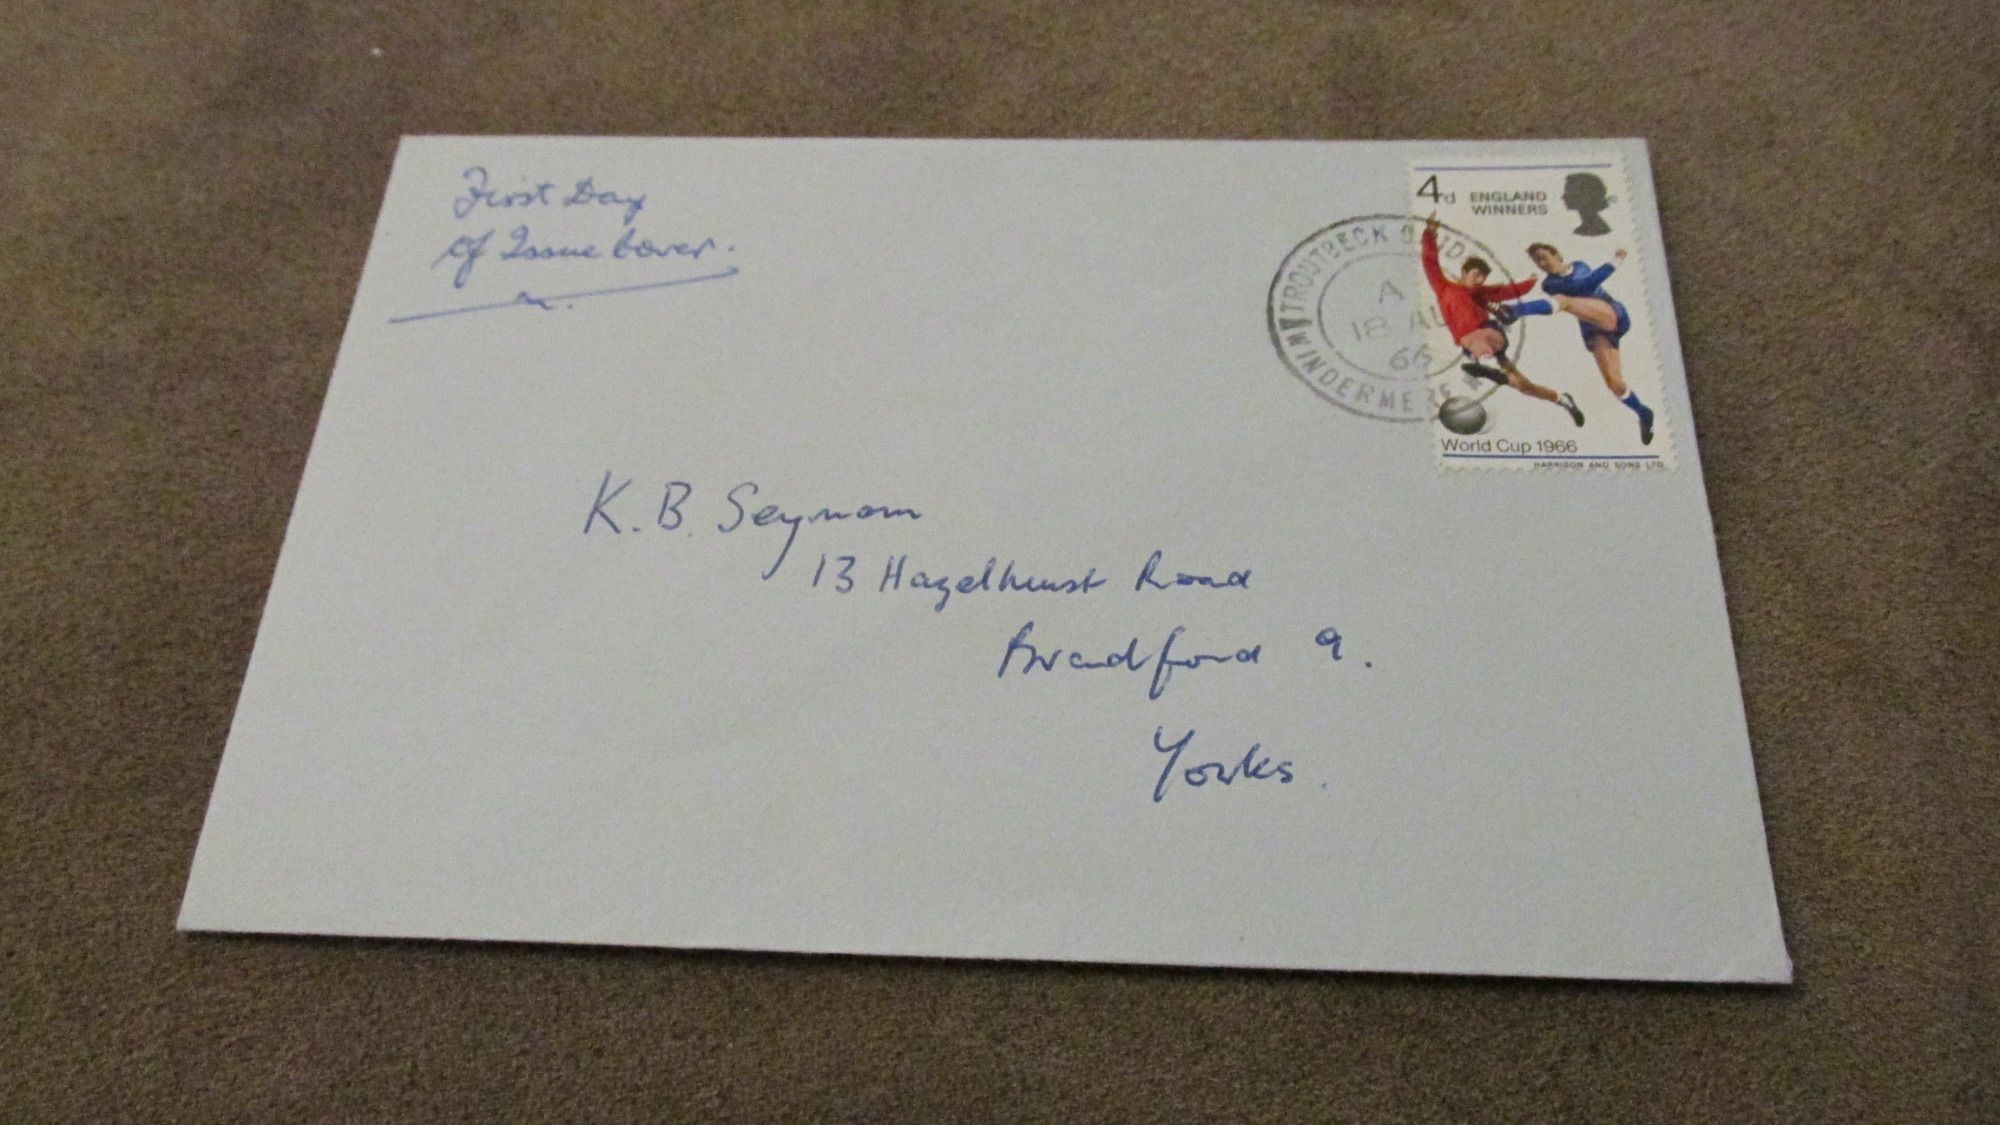 First Day
of Issue Cover.
4d ENGLAND
WINNERS
TROUTBECK BRIDGE
WINDERMERE
A
18 AU
66
World Cup 1966
HARRISON AND SONS LTD
K. B. Seymour
13 Hazelhurst Road
Bradford 9.
Yorks.